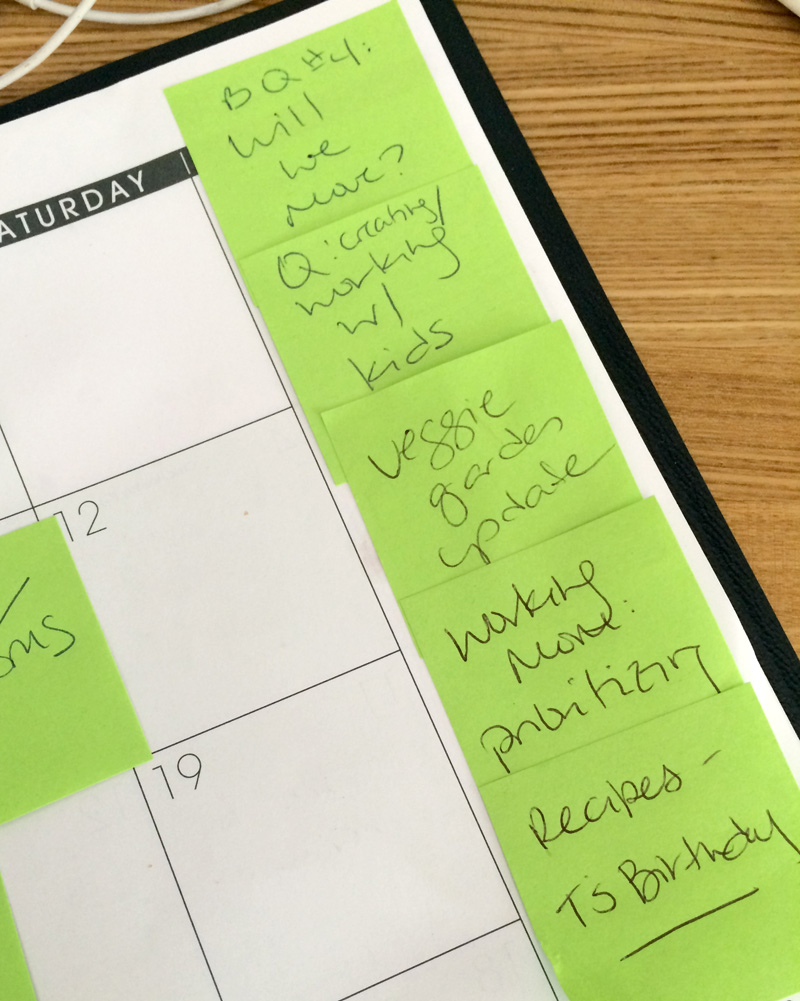 BQ#4:
Will
we
move?
ATURDAY
Q: creating/
working
w/
kids
veggie
garden
update
12
oms
working
mom:
prioritizing
19
Recipes -
T'S Birthday